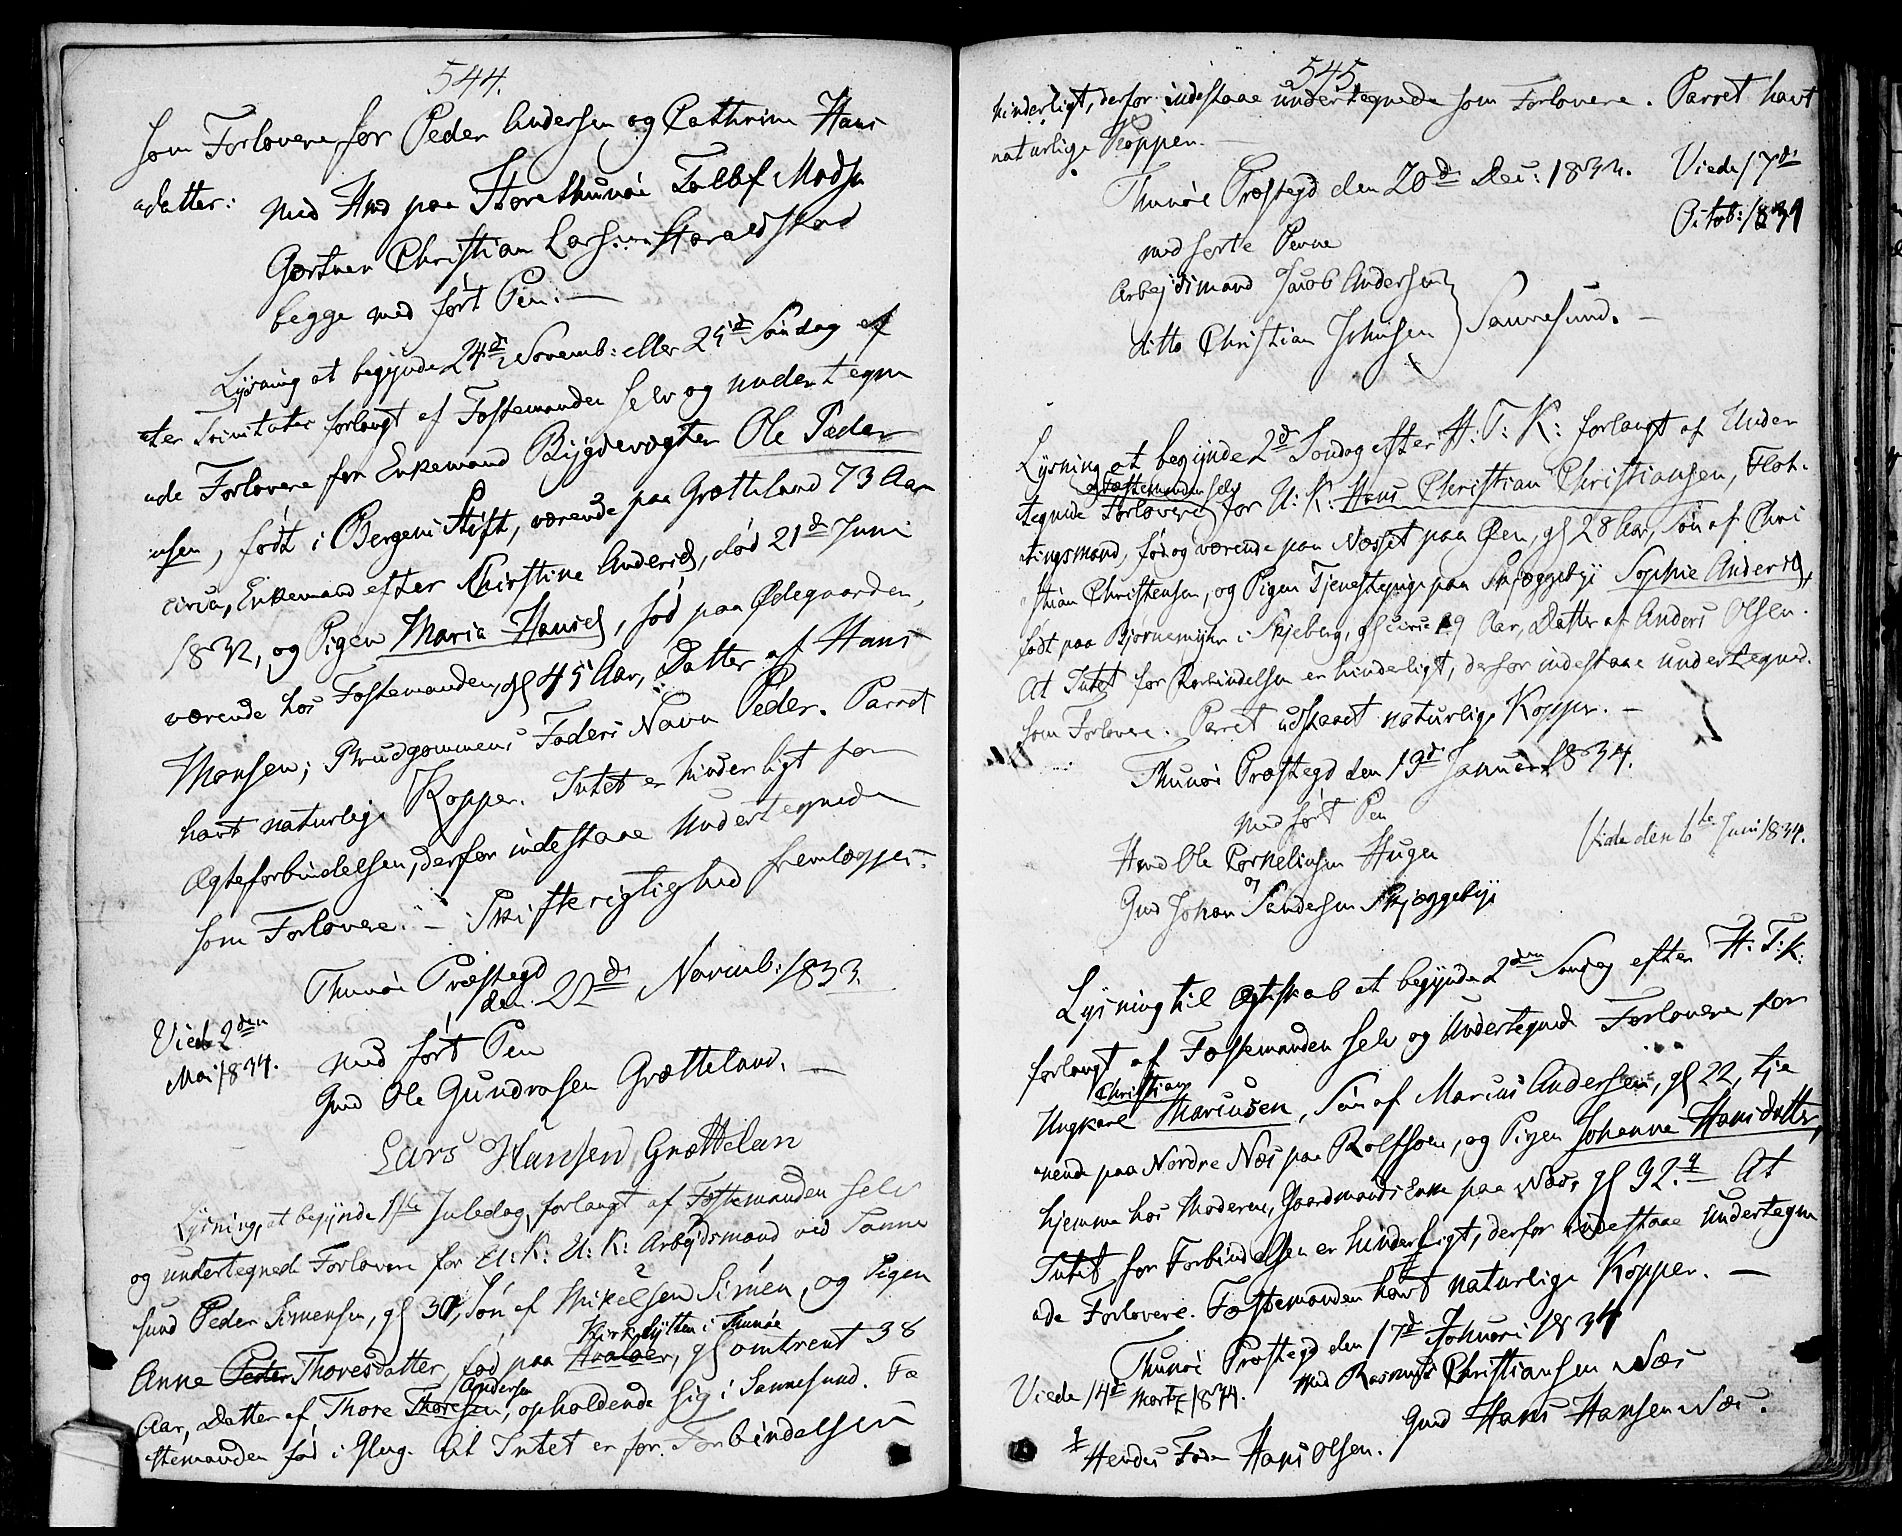 544.
som Forlovere for Peder Andersen og Cathrine Hans
datter:
med Hmd paa Storethunøi Tallef Madsen
Gartner Christian Larsen Haraldstad
begge med ført Pen. —
Lysning at begynde 24de Novemb: eller 25de Søndag ef
ter Trinitatis forlangt af Fæstemanden selv og undertegne
de Forlovere for Enkemand Bygdevægter Ole Peder
sen, født i Bergens Stift, værende paa Grætteland 73 Aar
circa, Enkemand efter Christine Andersd, død 21de Juni
1832, og Pigen Maria Hansd, fød paa Ødegaarden,
værende hos Fæstemanden, gl 45 Aar, Datter af Hans
Monsen; Brudgommens Faders Navn Peder. Parret
havt naturlige Kopper. Intet er hinderligt for
Ægteforbindelsen, derfor indestaae Undertegnede
som Forlovere. — Skifterigtighed fremlægges.
Thunøi Præstegd
den 22de Novemb: 1833
Vied 2den
Mai 1834.
med ført Pen
Gmd Ole Gundrosen Grætteland. —
Lars Hansen Grættelan
Lysning, at begynde 1ste Juledag, forlangt af Fæstemanden selv
og undertegnede Forlovere for U: K: U: K: Arbejdsmand ved Sanne
sund Peder Simensen, gl 30, Søn af Mikelsen Simen, og Pigen
Kirkehytten i Thunøe
Anne Peder Thoresdatter, fød paa Hvaløer, gl omtrent 38
Andersen
Aar, Datter af Thore Thoresen, opholdende sig i Sannesund. Fæ
stemanden fød i Glug. At Intet er for Forbindelsen
545
hinderligt, derfor indestaae undertegnede som Forlovere. Parret havt
naturlige Kopper. —
Thunøe Præstegd den 20de Dec: 1833.
Viede 17de
Octob: 1834
med førte Penne
Arbejdsmand Jacob Andersen
ditto Christian Johnsen } Sannesund. —
Lysning at begynde 2de Søndag efter H: T: K: forlangt af Under
og Fæstemanden selv
tegnede Forlovere for U: K: Hans Christian Christiansen, Flot-
tingsmand, fød og værende paa Næsset paa Øen, gl 28 Aar, Søn af Chri
stian Christensen, og Pigen Tjenestepige paa Skjæggebye Sophie Andersd,
født paa Bjørnemyhr i Skjeberg, gl circa 29 Aar, Datter af Anders Olsen.
At Intet for Forbindelsen er hinderligt, derfor indestaae undertegned.
som Forlovere. Parret udstaaet naturlige Kopper. —
Thunøi Præstegd den 13de Januar 1834.
med ført Pen
Viede den 6te Juni 1834.
Hmd Ole Cornelinsen Hugen
og
Gmd Johan Sandersen Skjæggebye
Lysning til Ægteskab at begynde 2den Søndag efter H: T: K:
forlangt af Fæstemanden selv og Undertegnede Forlovere for
Christian
Ungkarl Mariusen, Søn af Marius Andersen, gl 22, tje
nende paa Nordre Næs paa Rolfsøen, og Pigen Johanne Hansdatter,
hjemme hos Moderen, Gaardmands Enke paa Næs, gl 32. At
Intet for Forbindelsen er hinderligt, derfor indestaae Undertegne
de Forlovere. Fæstemanden havt naturlige Kopper. —
Thunøi Præstegd den 17de Januari 1834
Viede 14de Martz 1834.
med Rasmus Christiansen Næs
Gmd Hans Hansen Næs.
Hendes Fader Hans Olsen.